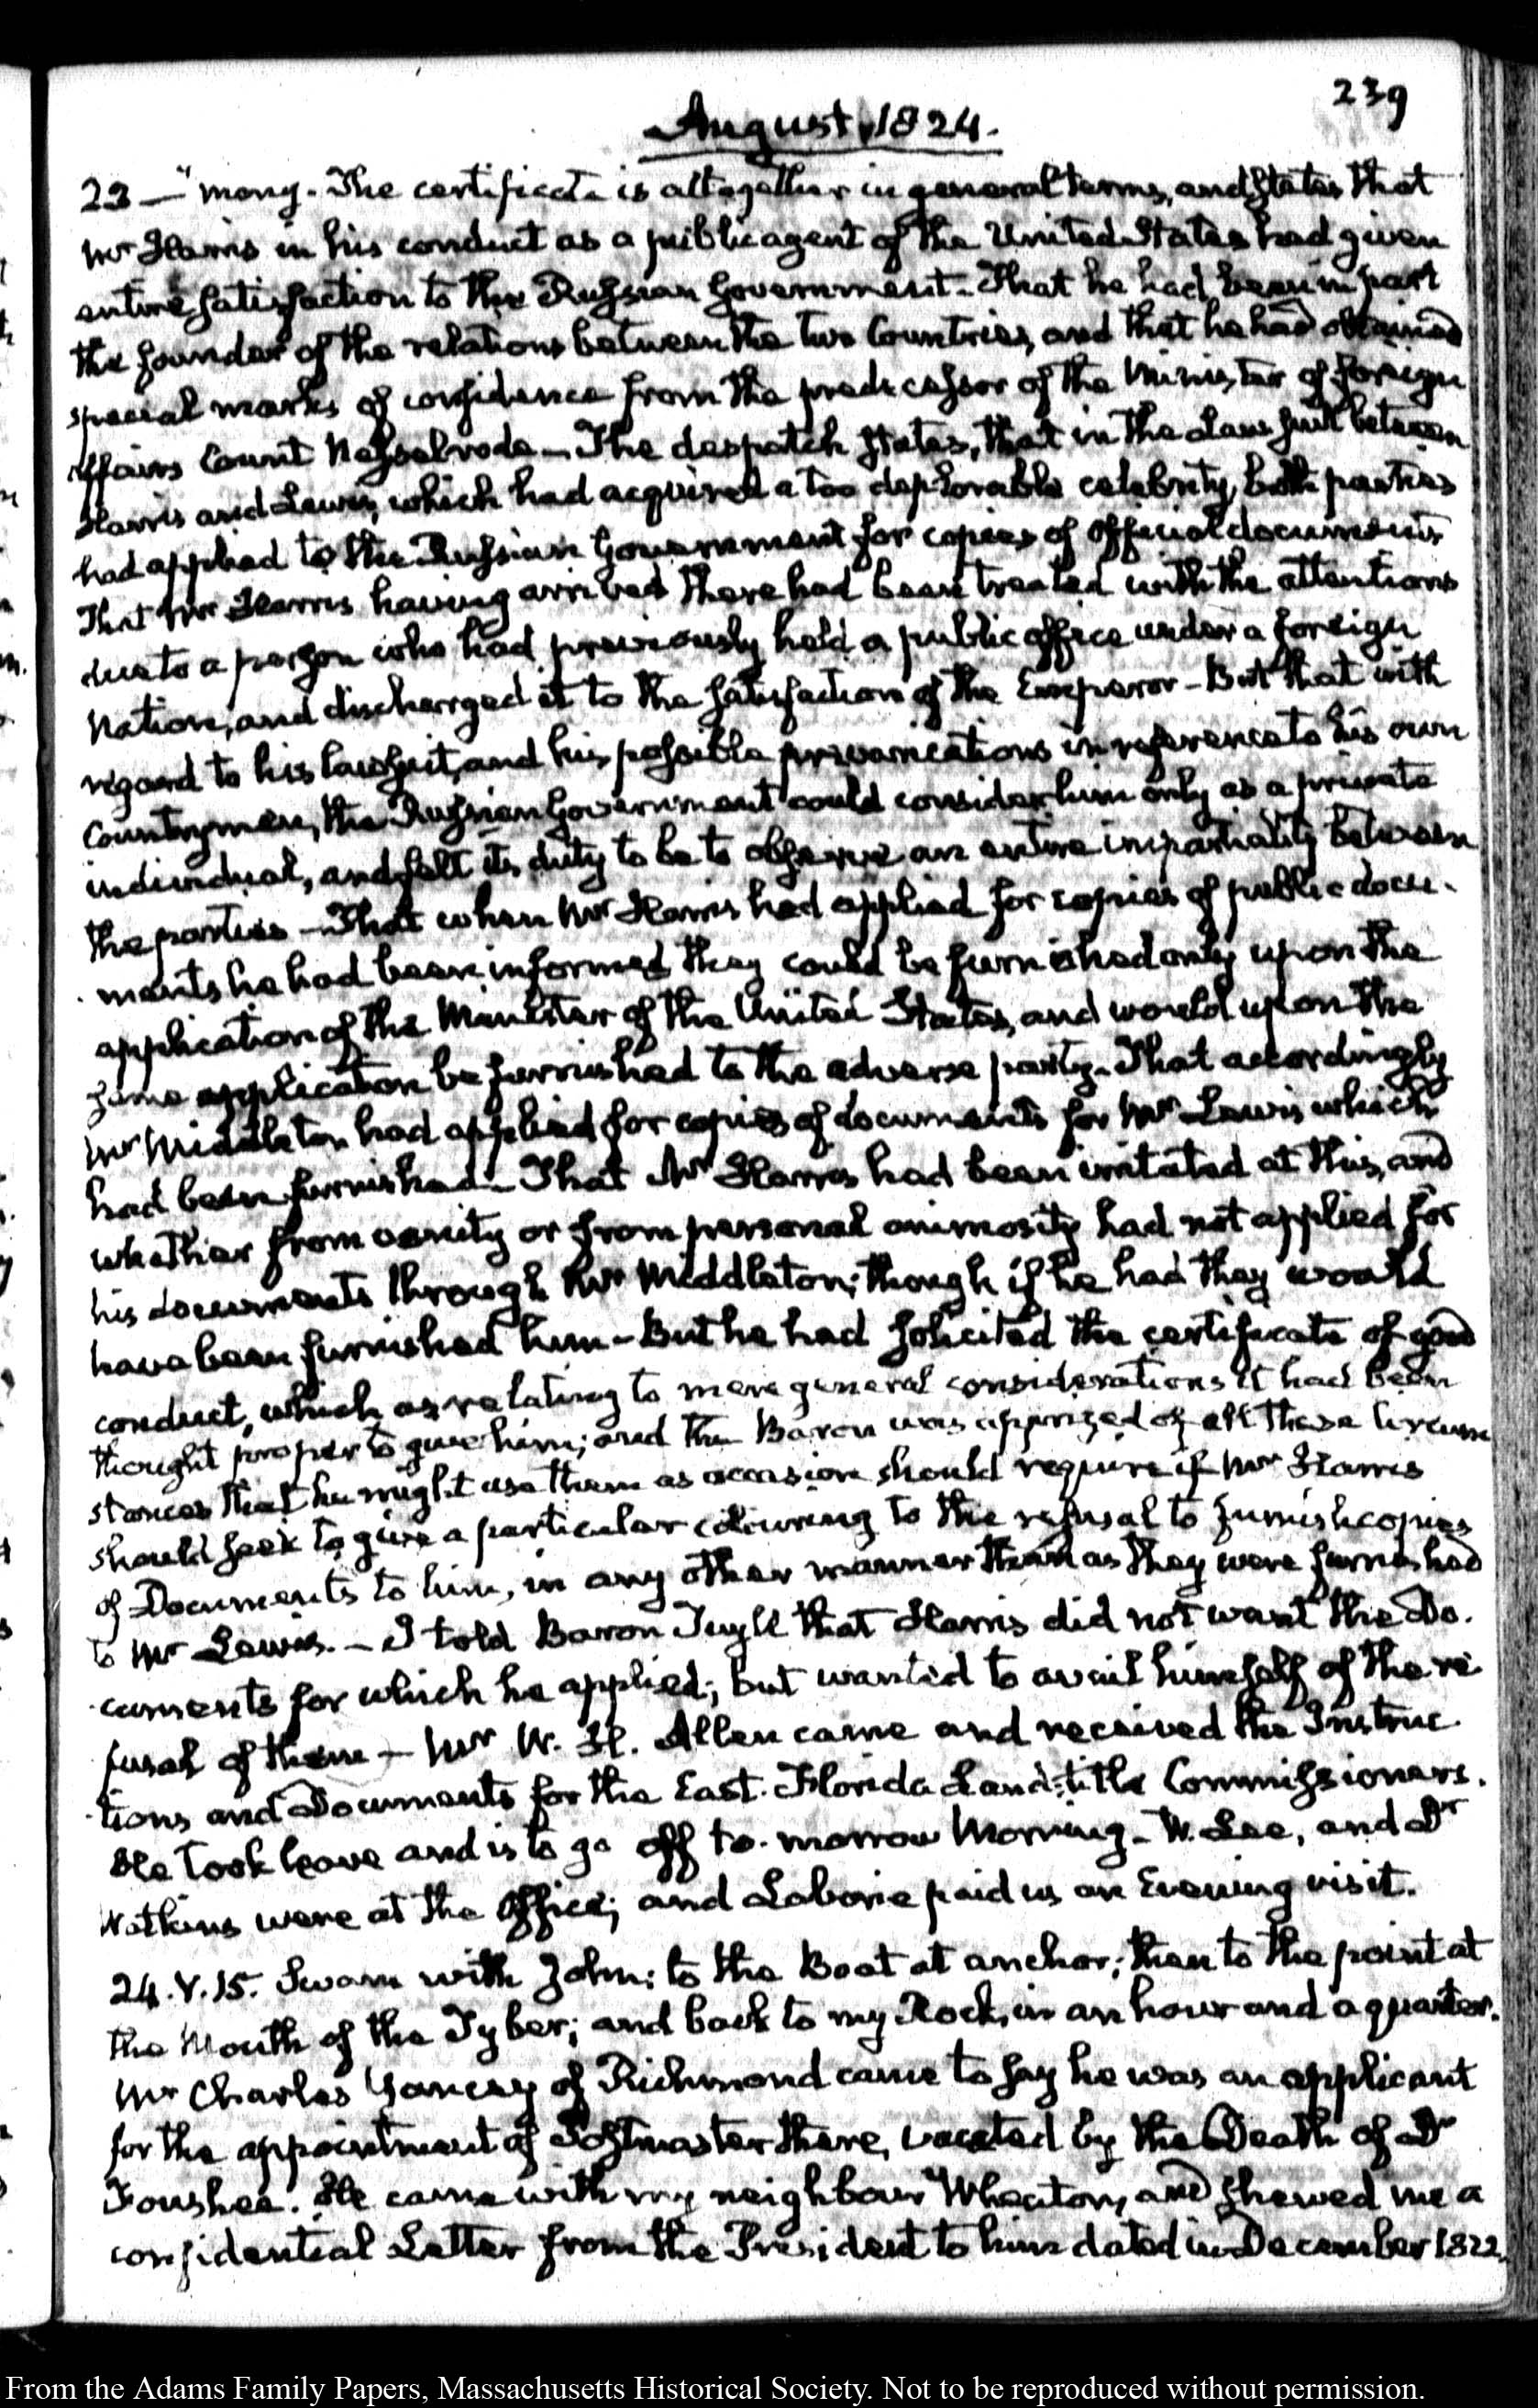 239
August 1824.
23 — "mony. The certificate is altogether in general terms, and states that
Mr Harris in his conduct as a public agent of the United States had given
entire satisfaction to the Russian Government. That he had been in part
the founder of the relations between the two Countries, and that he had obtained
special marks of confidence from the predecessor of the Minister of foreign
affairs Count Nesselrode — The despatch states, that in the Law suit between
Harris and Lewis, which had acquired a too deplorable celebrity, both parties
had applied to the Russian Government for copies of official documents
That Mr Harris having arrived there had been treated with the attentions
due to a person who had previously held a public office under a foreign
Nation, and discharged it to the satisfaction of the Emperor — But that with
regard to his lawsuit, and his possible prevarications in reference to his own
Countrymen, the Russian Government could consider him only as a private
individual, and felt its duty to be to observe an entire impartiality between
the parties — That when Mr Harris had applied for copies of public docu-
ments he had been informed they could be furnished only upon the
application of the Minister of the United States, and would upon the
same application be furnished to the adverse party. That accordingly
Mr Middleton had applied for copies of documents for Mr Lewis which
had been furnished — That Mr Harris had been irritated at this, and
whether from vanity or from personal animosity had not applied for
his documents through Mr Middleton; though if he had they would
have been furnished him — But he had solicited the certificate of good
conduct, which as relating to mere general considerations it had been
thought proper to give him; and the Baron was apprized of all these circum
stances that he might use them as occasion should require if Mr Harris
should seek to give a particular colouring to the refusal to furnish copies
of Documents to him, in any other manner than as they were furnished
to Mr Lewis. — I told Baron Tuyll that Harris did not want the Do-
cuments for which he applied; but wanted to avail himself of the re
fusal of them — Mr W. H. Allen came and received the Instruc
tions and Documents for the East. Florida Land-title Commissioners.
He took leave and is to go off to-morrow Morning — W. Lee, and Dr
Watkins were at the Office; and Laborie paid us an Evening visit.
24. V.15. Swam with John; to the Boat at anchor; then to the point at
the Mouth of the Tyber; and back to my Rock, in an hour and a quarter.
Mr Charles Yancey of Richmond came to say he was an applicant
for the appointment of Postmaster there, vacated by the Death of Dr
Foushee. He came with my neighbour Wheaton, and shewed me a
confidential Letter from the President to him dated in December 1822.
From the Adams Family Papers, Massachusetts Historical Society. Not to be reproduced without permission.